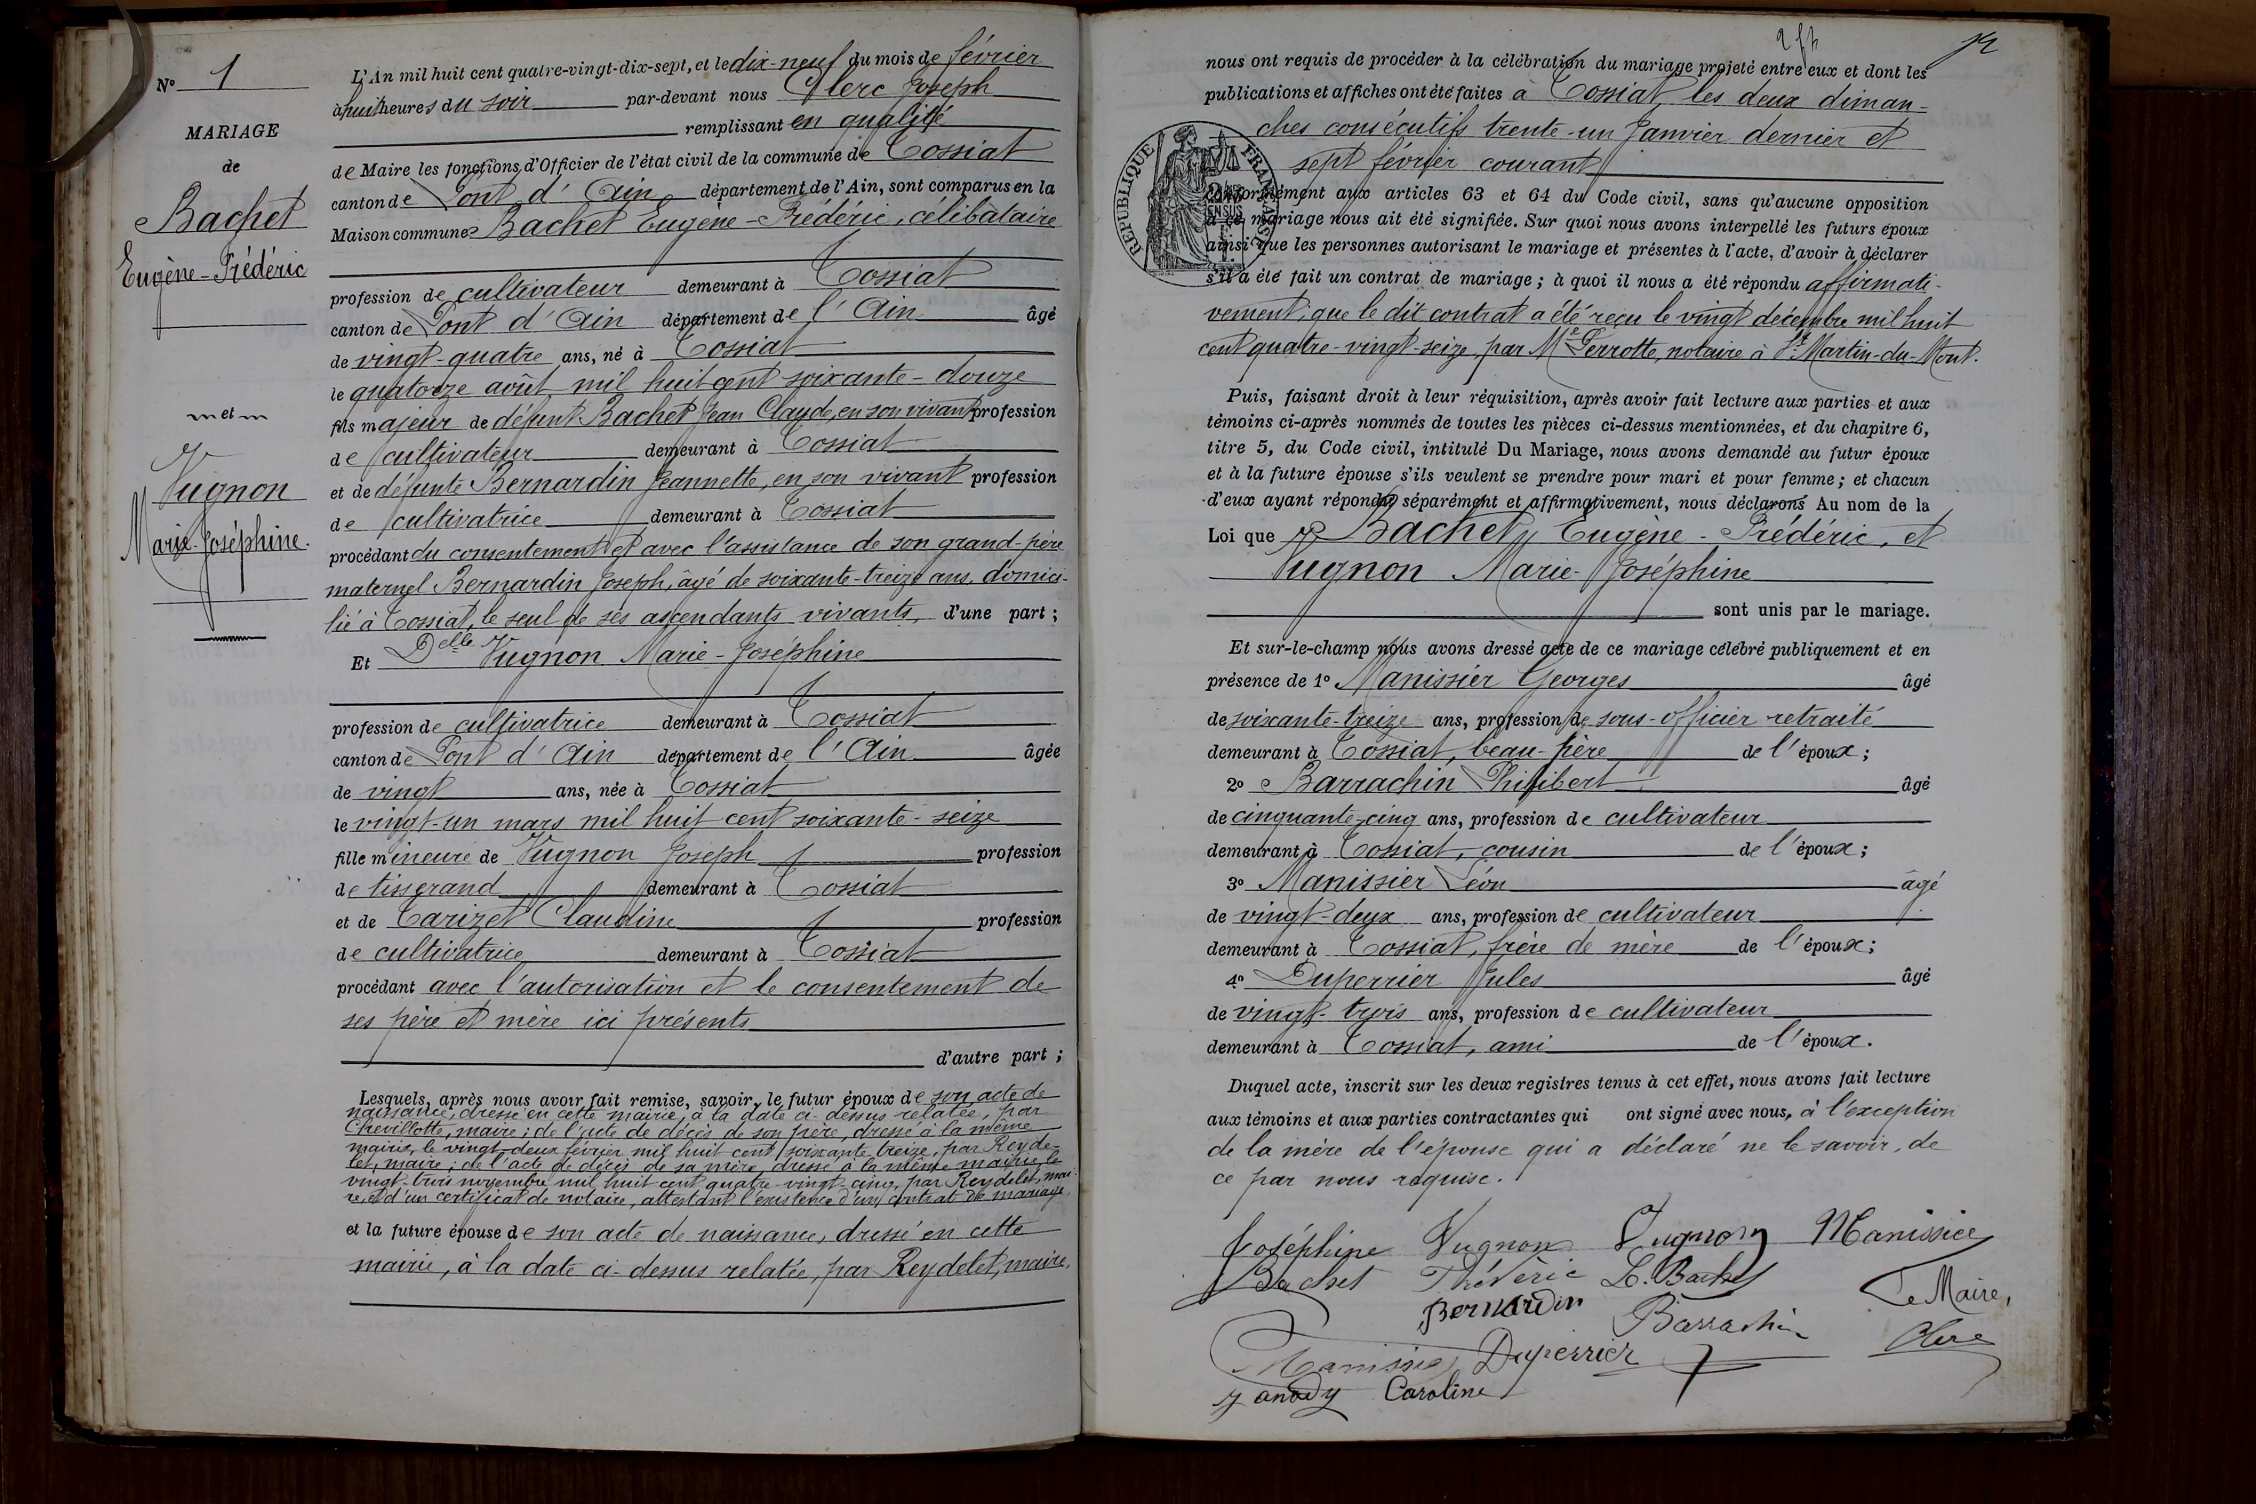 N° 1
MARIAGE
de
Bachet
Eugène-Frédéric
et
Vugnon
Marie-Joséphine.
L'An mil huit cent quatre-vingt-dix-sept, et le dix-neuf du mois de février
à huit heures du soir par-devant nous Clerc Joseph
remplissant en qualité
de Maire les fonctions d'Officier de l'état civil de la commune de Tossiat
canton de Pont d'Ain département de l'Ain, sont comparus en la
Maison commune Bachet Eugène-Frédéric, célibataire
profession de cultivateur demeurant à Tossiat
canton de Pont d'Ain département de l'Ain âgé
de vingt-quatre ans, né à Tossiat
le quatorze août mil huit cent soixante-douze
fils majeur de défunt Bachet Jean Claude, en son vivant profession
de cultivateur demeurant à Tossiat
et de défunte Bernardin Jeannette, en son vivant profession
de cultivatrice demeurant à Tossiat
procédant du consentement et avec l'assistance de son grand-père
maternel Bernardin Joseph, âgé de soixante-treize ans, domici-
lié à Tossiat, le seul de ses ascendants vivants, d'une part ;
Et Delle Vugnon Marie-Joséphine
profession de cultivatrice demeurant à Tossiat
canton de Pont d'Ain département de l'Ain âgée
de vingt ans, née à Tossiat
le vingt-un mars mil huit cent soixante-seize
fille mineure de Vugnon Joseph profession
de tisserand demeurant à Tossiat
et de Carizet Claudine profession
de cultivatrice demeurant à Tossiat
procédant avec l'autorisation et le consentement de
ses père et mère ici présents
d'autre part ;
Lesquels, après nous avoir fait remise, savoir, le futur époux de son acte de
naissance, dressé en cette mairie, à la date ci-dessus relatée, par
Chevillotte, maire ; de l'acte de décès de son père, dressé à la même
mairie, le vingt-deux février mil huit cent soixante treize, par Reyde-
let, maire ; de l'acte de décès de sa mère, dressé à la même mairie, le
vingt-trois novembre mil huit cent quatre-vingt-cinq, par Reydelet, mai-
re et d'un certificat de notaire, attestant l'existence d'un contrat de mariage,
et la future épouse de son acte de naissance, dressé en cette
mairie, à la date ci-dessus relatée, par Reydelet, maire,
nous ont requis de procéder à la célébration du mariage projeté entre eux et dont les
publications et affiches ont été faites à Tossiat, les deux diman-
ches consécutifs trente-un Janvier dernier et
sept février courant
RÉPUBLIQUE FRANÇAISE
conformément aux articles 63 et 64 du Code civil, sans qu'aucune opposition
à ce mariage nous ait été signifiée. Sur quoi nous avons interpellé les futurs époux
ainsi que les personnes autorisant le mariage et présentes à l'acte, d'avoir à déclarer
s'il a été fait un contrat de mariage ; à quoi il nous a été répondu affirmati-
vement ; que le dit contrat a été reçu le vingt décembre mil huit
cent quatre-vingt-seize, par Me Perrotte, notaire à St Martin-du-Mont.
Puis, faisant droit à leur réquisition, après avoir fait lecture aux parties et aux
témoins ci-après nommés de toutes les pièces ci-dessus mentionnées, et du chapitre 6,
titre 5, du Code civil, intitulé Du Mariage, nous avons demandé au futur époux
et à la future épouse s'ils veulent se prendre pour mari et pour femme ; et chacun
d'eux ayant répondu séparément et affirmativement, nous déclarons Au nom de la
Loi que Bachet Eugène-Frédéric, et
Vugnon Marie-Joséphine
sont unis par le mariage.
Et sur-le-champ nous avons dressé acte de ce mariage célébré publiquement et en
présence de 1° Manissier Georges âgé
de soixante-treize ans, profession de sous-officier retraité
demeurant à Tossiat, beau-père de l'époux ;
2° Barrachin Philibert âgé
de cinquante-cinq ans, profession de cultivateur
demeurant à Tossiat, cousin de l'époux ;
3° Manissier Léon âgé
de vingt-deux ans, profession de cultivateur
demeurant à Tossiat, frère de mère de l'époux ;
4° Duperrier Jules âgé
de vingt-trois ans, profession de cultivateur
demeurant à Tossiat, ami de l'époux.
Duquel acte, inscrit sur les deux registres tenus à cet effet, nous avons fait lecture
aux témoins et aux parties contractantes qui ont signé avec nous, à l'exception
de la mère de l'épouse qui a déclaré ne le savoir, de
ce par nous requise.
Joséphine Vugnon Vugnon Manissier
Bachet Frédéric L. Bachet
Bernardin Barrachin Le Maire,
Manissier Duperrier Clerc
Caroline